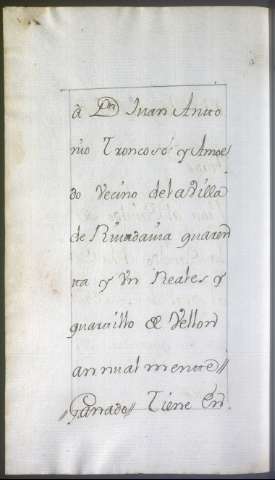 à Dn Juan Anto
nio Troncoso y Amoe
do Vecino de la Villa
de Rivadavia quaren
ta y Vn Reales y
quartillo de Vellon
annualmente //
// Ganado // Tiene En